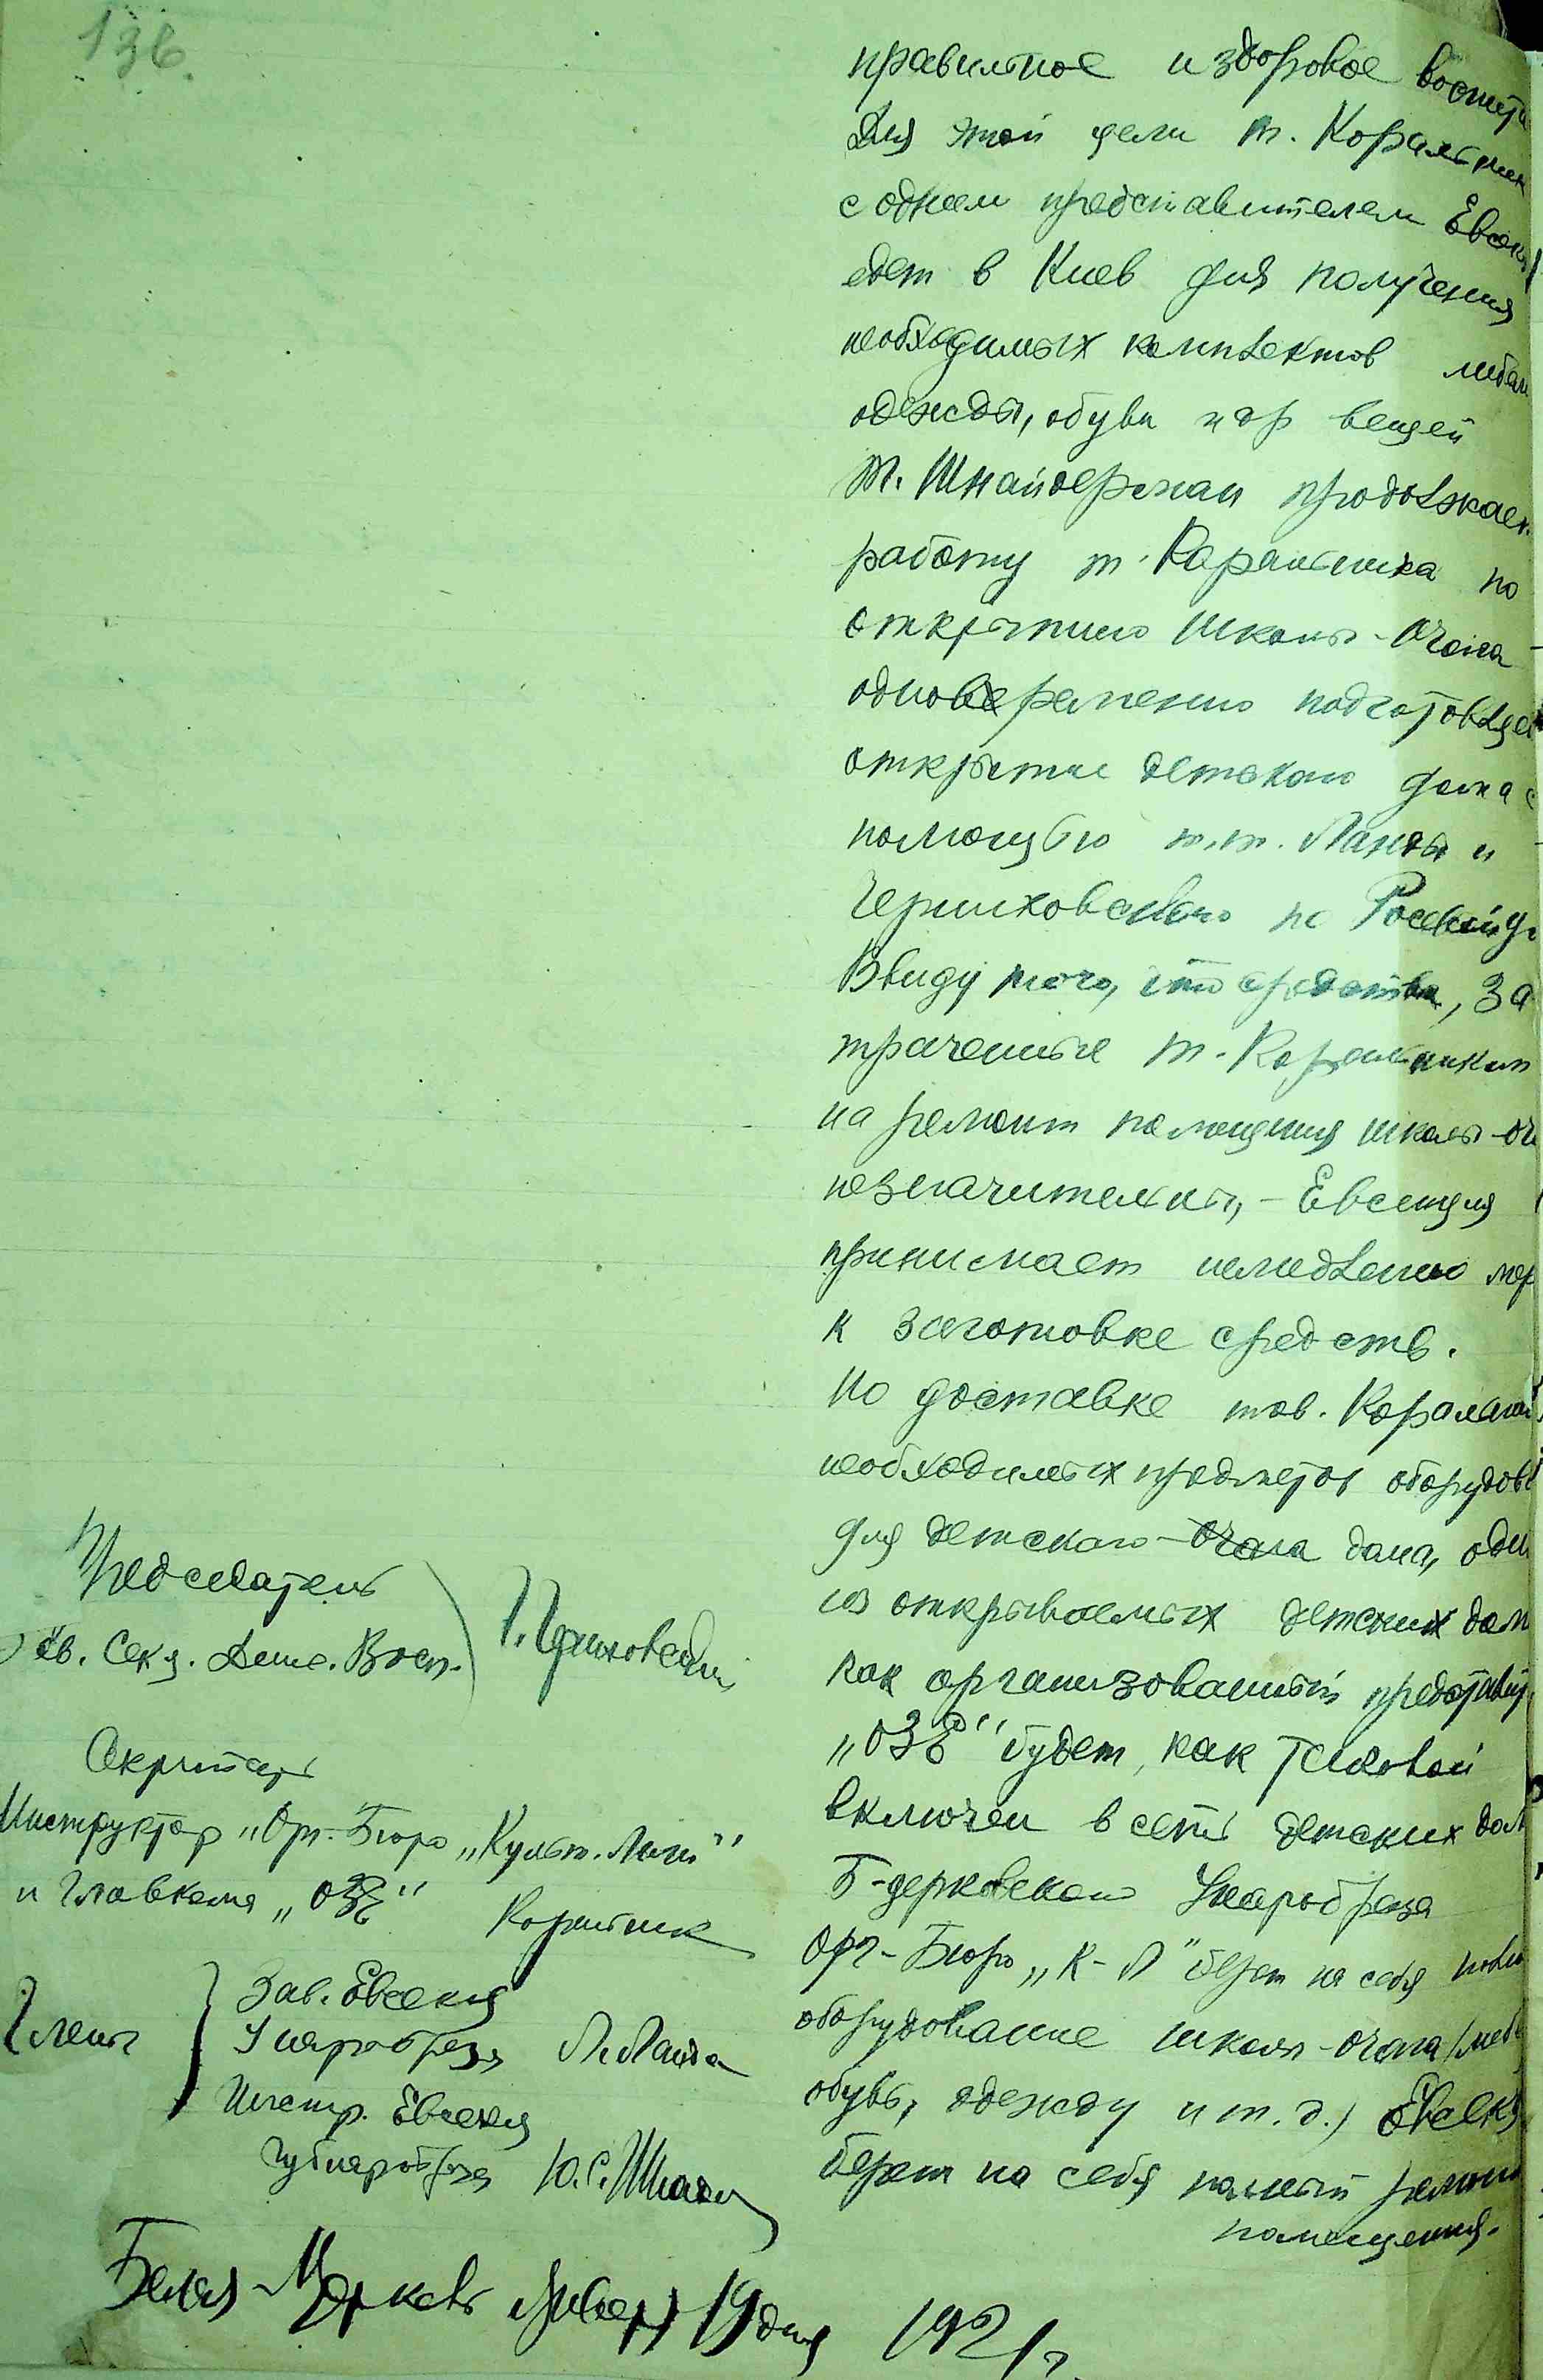 136.
правильное и здоровое воспита
Для этой цели т. Коральник
с одним представителем Евсекц
едет в Киев для получения
необходимых комплектов мебели
одежды, обуви и др вещей
т. Шнайдерман продолжает
работу т. Коральника по
открытию школы-очага
одновременно подготовляет
открытие детского дома с
помощью т.т. Ланды и
Черниховского по
Ввиду того, что средства, за
траченные т. Коральником
на ремонт помещения школы-оч
незначительны, - Евсекция
принимает немедленно мер
к заготовке средств.
По доставке тов. Коральник
необходимых предметов оборудов
для детского очага дома, один
из открываемых детских дом
как организованный представит
„ОЗЕ" будет, как таковой
включен в сеть детских дом
Б-церковского Унаробраза
Орг-Бюро „К-Л" берет на себя полно
оборудование школы-очага (мебе
обувь, одежду и т.д.) Евсекц
берет на себя полный ремонт
помещения.
Председатель
Зав. Секц. Дошк. Восп.
Секретарь
Инструктор „Орг.-Бюро „Культ. Лиги"
и Главкома „ОЗЕ" Коральник
Члены
Зав. Евсекция
Унаробраза Л. Ланда
Инстр. Евсекция
Губнаробраза Ю.С. Шнайд
Белая-Церковь 19 дня 1921 г.